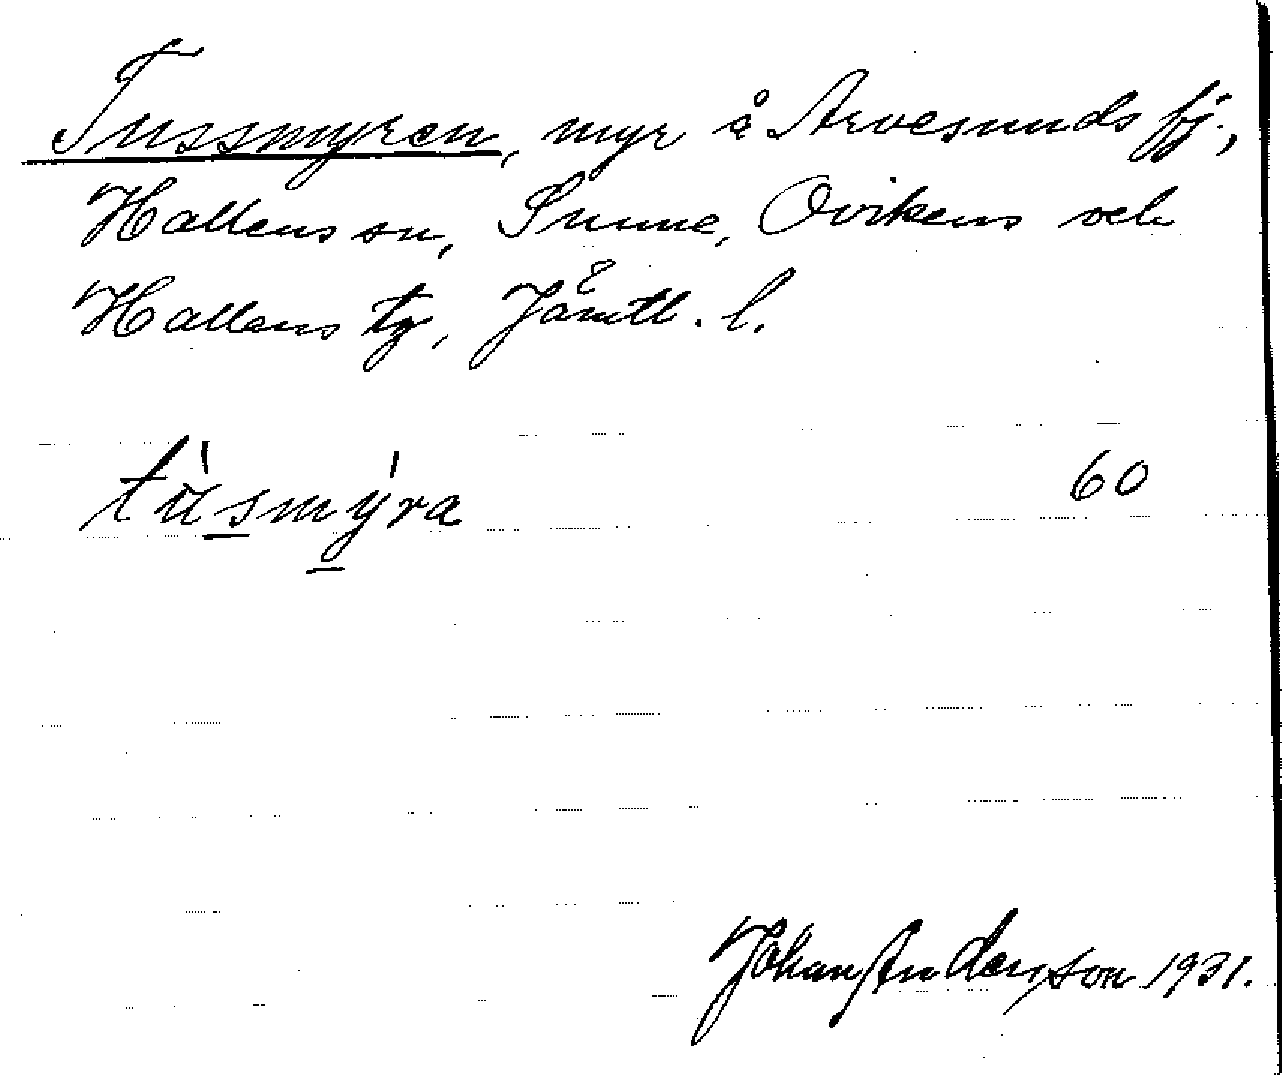 Tussmyren, myr å Arvesunds fj.,
Hallens sn, Sunne, Ovikens och
Hallens tg, Jämtl. l.
tu̍smy̍ra 60
Johan Anderson 1931.